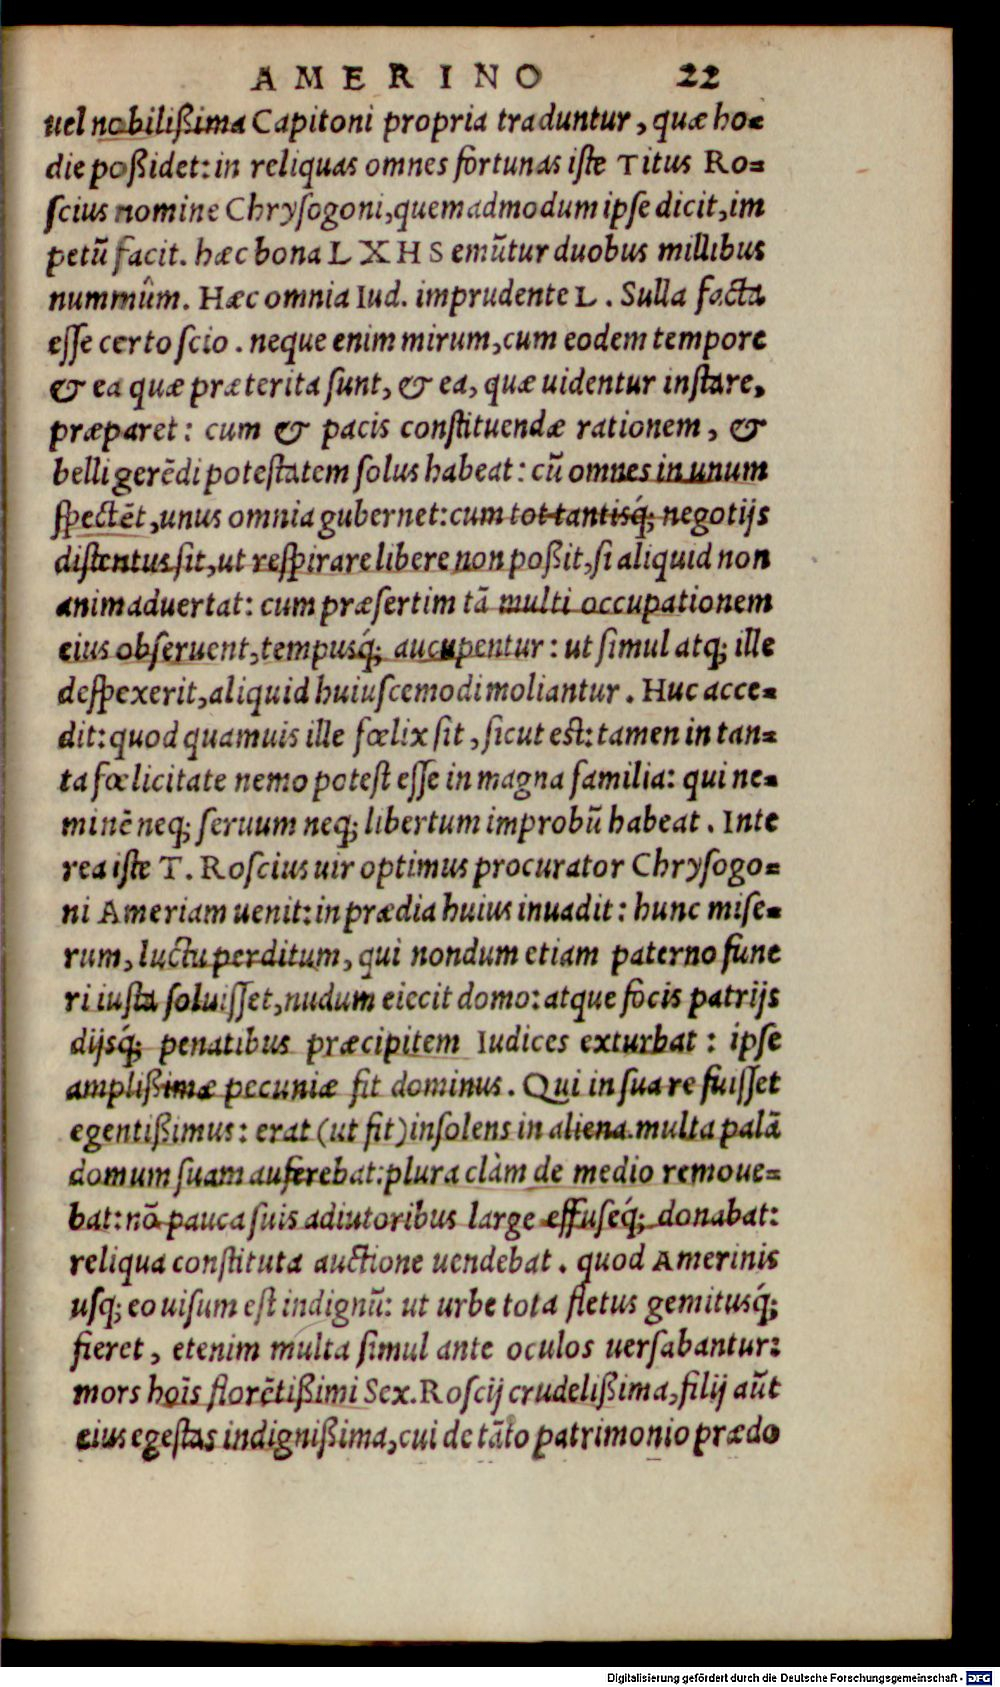 AMERINO 22
uel nobilißima Capitoni propria traduntur, quæ ho=
die poßidet: in reliquas omnes fortunas iſte Titus Ro=
ſcius nomine Chryſogoni, quemadmodum ipſe dicit, im
petū facit. hæc bona L X H S emūtur duobus millibus
nummûm. Hæc omnia Iud. imprudente L. Sulla facta
eſſe certo ſcio. neque enim mirum, cum eodem tempore
& ea quæ præterita ſunt, & ea, quæ uidentur inſtare,
præparet: cum & pacis conſtituendæ rationem, &
belli gerēdi poteſtatem ſolus habeat: cū omnes in unum
ſpectēt, unus omnia gubernet: cum tot tantisq́; negotijs
diſtentus ſit, ut reſpirare libere non poßit, ſi aliquid non
animaduertat: cum præſertim tā multi occupationem
eius obſeruent, tempusq́; aucupentur: ut ſimul atq; ille
deſpexerit, aliquid huiuſcemodi moliantur. Huc acce=
dit: quod quamuis ille fœlix ſit, ſicut est: tamen in tan=
ta fœlicitate nemo poteſt eſſe in magna familia: qui ne=
minē neq; ſeruum neq; libertum improbū habeat. Inte
rea iſte T. Roſcius uir optimus procurator Chryſogo=
ni Ameriam uenit: in prædia huius inuadit: hunc miſe=
rum, luctu perditum, qui nondum etiam paterno fune
ri iuſta ſoluiſſet, nudum eiecit domo: atque focis patrijs
dijsq́; penatibus præcipitem Iudices exturbat: ipſe
amplißimæ pecuniæ fit dominus. Qui in ſua re fuiſſet
egentißimus: erat (ut fit) inſolens in aliena. multa palā
domum ſuam auferebat: plura clàm de medio remoue=
bat: nō pauca ſuis adiutoribus large effuſeq́; donabat:
reliqua conſtituta auctione uendebat. quod Amerinis
uſq; eo uiſum eſt indignū: ut urbe tota fletus gemitusq́;
fieret, etenim multa ſimul ante oculos uerſabantur:
mors hoīs florētißimi Sex. Roſcij crudelißima, filij aūt
eius egeſtas indignißima, cui de tāto patrimonio prædo
Digitalisierung gefördert durch die Deutsche Forschungsgemeinschaft - DFG